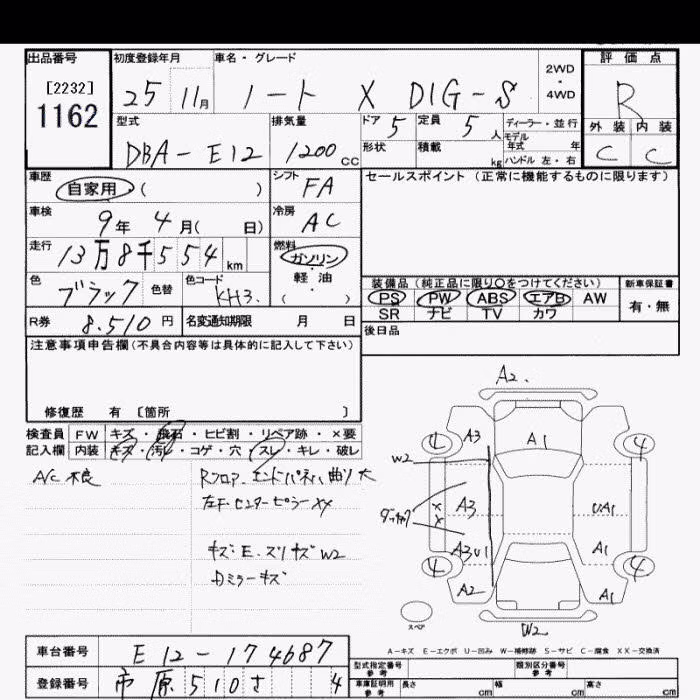 出品番号 初度登録年月 車名・グレード 評価点
[2232] 1162 25 11月 ノート X DIG-S 2WD・4WD R
型式 排気量 ドア 5 定員 5 人 ディーラー・並行 外装 内装
DBA-E12 1200cc 形状 積載 kg モデル年式 年 C C
ハンドル 左・右
車歴 自家用 ( ) シフト FA セールスポイント (正常に機能するものに限ります)
車検 9年 4月( 日) 冷房 AC
走行 13万8千554km 燃料 ガソリン・軽油 ( )
色 ブラック 色替 色コード KH3.
装備品 (純正品に限り○をつけてください) 新車保証書
PS PW ABS エアB AW 有・無
SR ナビ TV カワ
R券 8.510円 名変通知期限 月 日 後日品
注意事項申告欄(不具合内容等は具体的に記入して下さい)
修復歴 有 [箇所 ]
検査員 FW キズ・飛石・ヒビ割・リペア跡・×要
記入欄 内装 キズ・汚レ・コゲ・穴・スレ・キレ・破レ
A/C 不良 Rフロア.エンドパネル曲り大
左下センターピラーXX
キズ・E.スリキズ W2
ミラーキズ
A2.
A3 A1
W2
A3 UA1
XX
A3 U1 A1
A2 A1
W2
4 4 4
スペア
A-キズ E-エクボ U-凹み W-補修跡 S-サビ C-腐食 XX-交換済
車台番号 E12-174687
登録番号 市原510さ 4
型式指定番号 参考 類別区分番号 参考
車庫証明用 参考 長さ cm 幅 cm 高さ cm